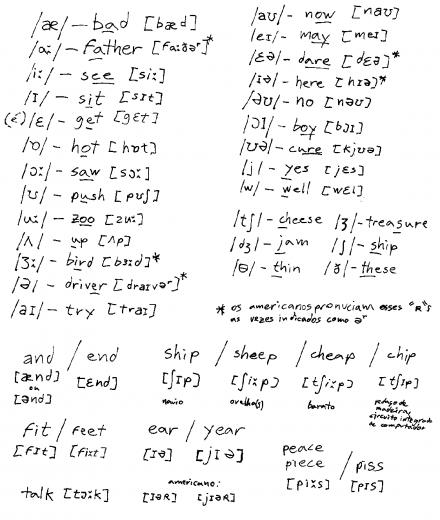 /æ/ – bad [bæd]
/ɑː/ – father [fɑːðəʳ]*
/iː/ – see [siː]
/ɪ/ – sit [sɪt]
(ɛ) /ɛ/ – get [gɛt]
/ɒ/ – hot [hɒt]
/ɔː/ – saw [sɔː]
/ʊ/ – push [pʊʃ]
/uː/ – zoo [zuː]
/ʌ/ – up [ʌp]
/ɜː/ – bird [bɜːd]*
/ə/ – driver [draɪvəʳ]*
/aɪ/ – try [traɪ]
/aʊ/ – now [naʊ]
/eɪ/ – may [meɪ]
/ɛə/ – dare [dɛə]*
/ɪə/ – here [hɪə]*
/əʊ/ – no [nəʊ]
/ɔɪ/ – boy [bɔɪ]
/ʊə/ – cure [kjʊə]
/j/ – yes [jɛs]
/w/ – well [wɛl]
/tʃ/ – cheese /ʒ/ – treasure
/dʒ/ – jam /ʃ/ – ship
/θ/ – thin /ð/ – these
* os americanos pronuciam esses "R"s
as vezes indicados como əʳ
and / end
[ænd] [ɛnd]
ou
[ənd]
ship / sheep / cheap / chip
[ʃɪp] [ʃiːp] [tʃiːp] [tʃɪp]
navio ovelha(s) barato pedaço de
madeira,
circuito integrado
de computador
fit / feet
[fɪt] [fiːt]
ear / year
[ɪə] [jɪə]
americano:
[ɪəR] [jɪəR]
peace
piece / piss
[piːs] [pɪs]
talk [tɔːk]